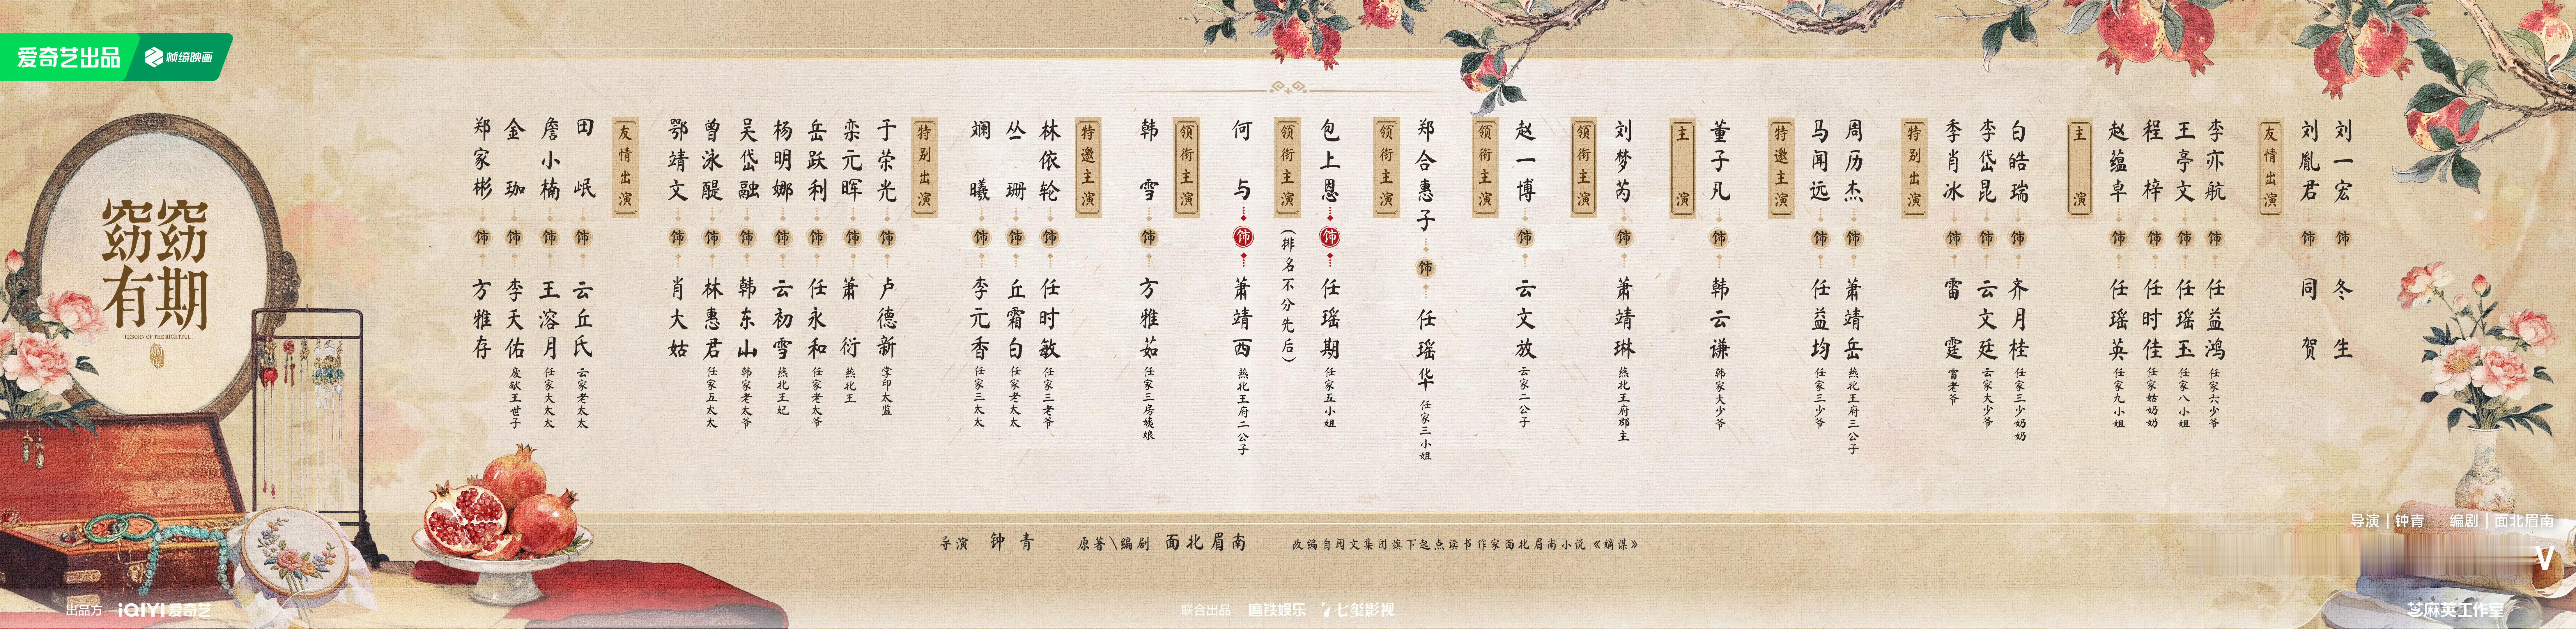 爱奇艺出品
帧绮映画
窈窈
有期
郑家彬 饰 方雅存
金珈 饰 李天佑 废献王世子
詹小楠 饰 王溶月 任家大太太
田岷 饰 云丘氏 云家老太太
友情出演
鄂靖文 饰 肖大姑
曾泳醍 饰 林惠君 任家五太太
吴岱融 饰 韩东山 韩家老太爷
杨明娜 饰 云初雪 燕北王妃
岳跃利 饰 任永和 任家老太爷
栾元晖 饰 萧衍 燕北王
于荣光 饰 卢德新 掌印太监
特别出演
斓曦 饰 李元香 任家三太太
丛珊 饰 丘霜白 任家老太太
林依轮 饰 任时敏 任家三老爷
特邀主演
韩雪 饰 方雅茹 任家三房姨娘
领衔主演
何与 饰 萧靖西 燕北王府二公子
领衔主演
(排名不分先后)
包上恩 饰 任瑶期 任家五小姐
领衔主演
郑合惠子 饰 任瑶华 任家三小姐
领衔主演
赵一博 饰 云文放 云家二公子
领衔主演
刘梦芮 饰 萧靖琳 燕北王府郡主
主演
董子凡 饰 韩云谦 韩家大少爷
特邀主演
马闻远 饰 任益均 任家三少爷
周历杰 饰 萧靖岳 燕北王府三公子
特别出演
季肖冰 饰 雷霆 雷老爷
李岱昆 饰 云文廷 云家大少爷
白皓瑞 饰 齐月桂 任家三少奶奶
主演
赵蕴卓 饰 任瑶英 任家九小姐
程梓 饰 任时佳 任家姑奶奶
王亭文 饰 任瑶玉 任家八小姐
李亦航 饰 任益鸿 任家六少爷
友情出演
刘胤君 饰 同贺
刘一宏 饰 冬生
导演 钟青 原著\编剧 面北眉南 改编自阅文集团旗下起点读书作家面北眉南小说《嫡谋》
导演|钟青 编剧|面北眉南
出品方 iQIYI 爱奇艺
联合出品 磨铁娱乐 七玺影视
芝麻英工作室